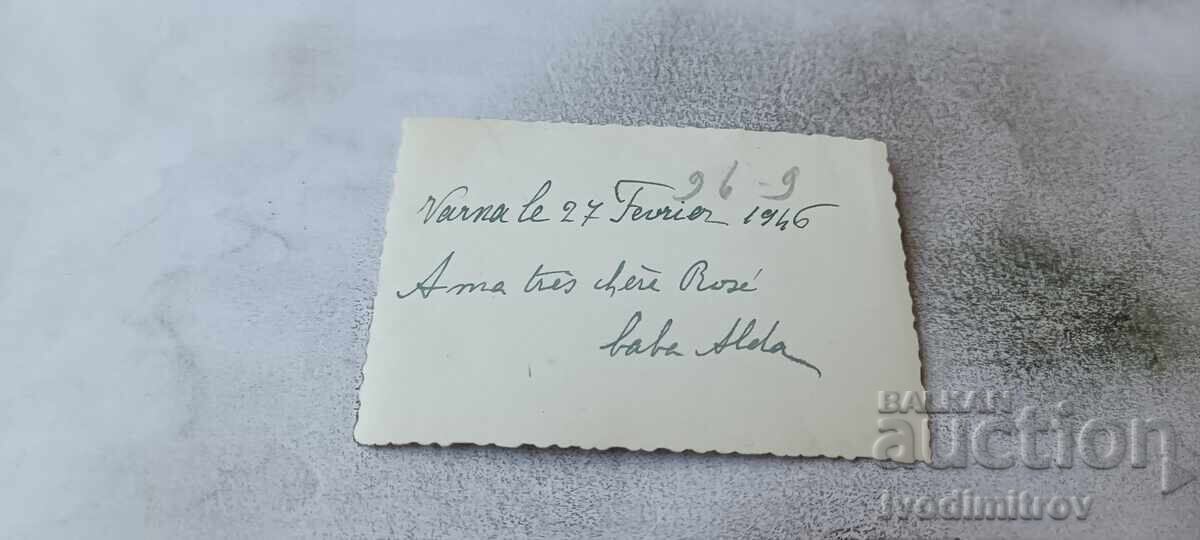 96-9
Varna le 27 Fevrier 1946
A ma très chère Rosé
baba Alda
BALKAN
auction
ivodimitrov